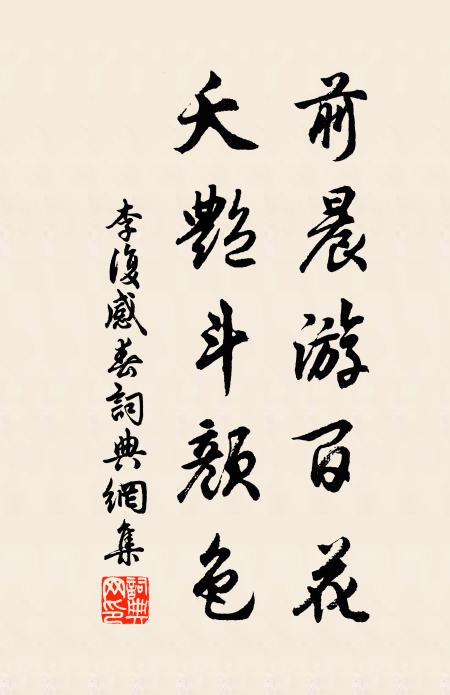 前晨游百花
夭艷斗顏色
李復感春詞典網集
詞典网印